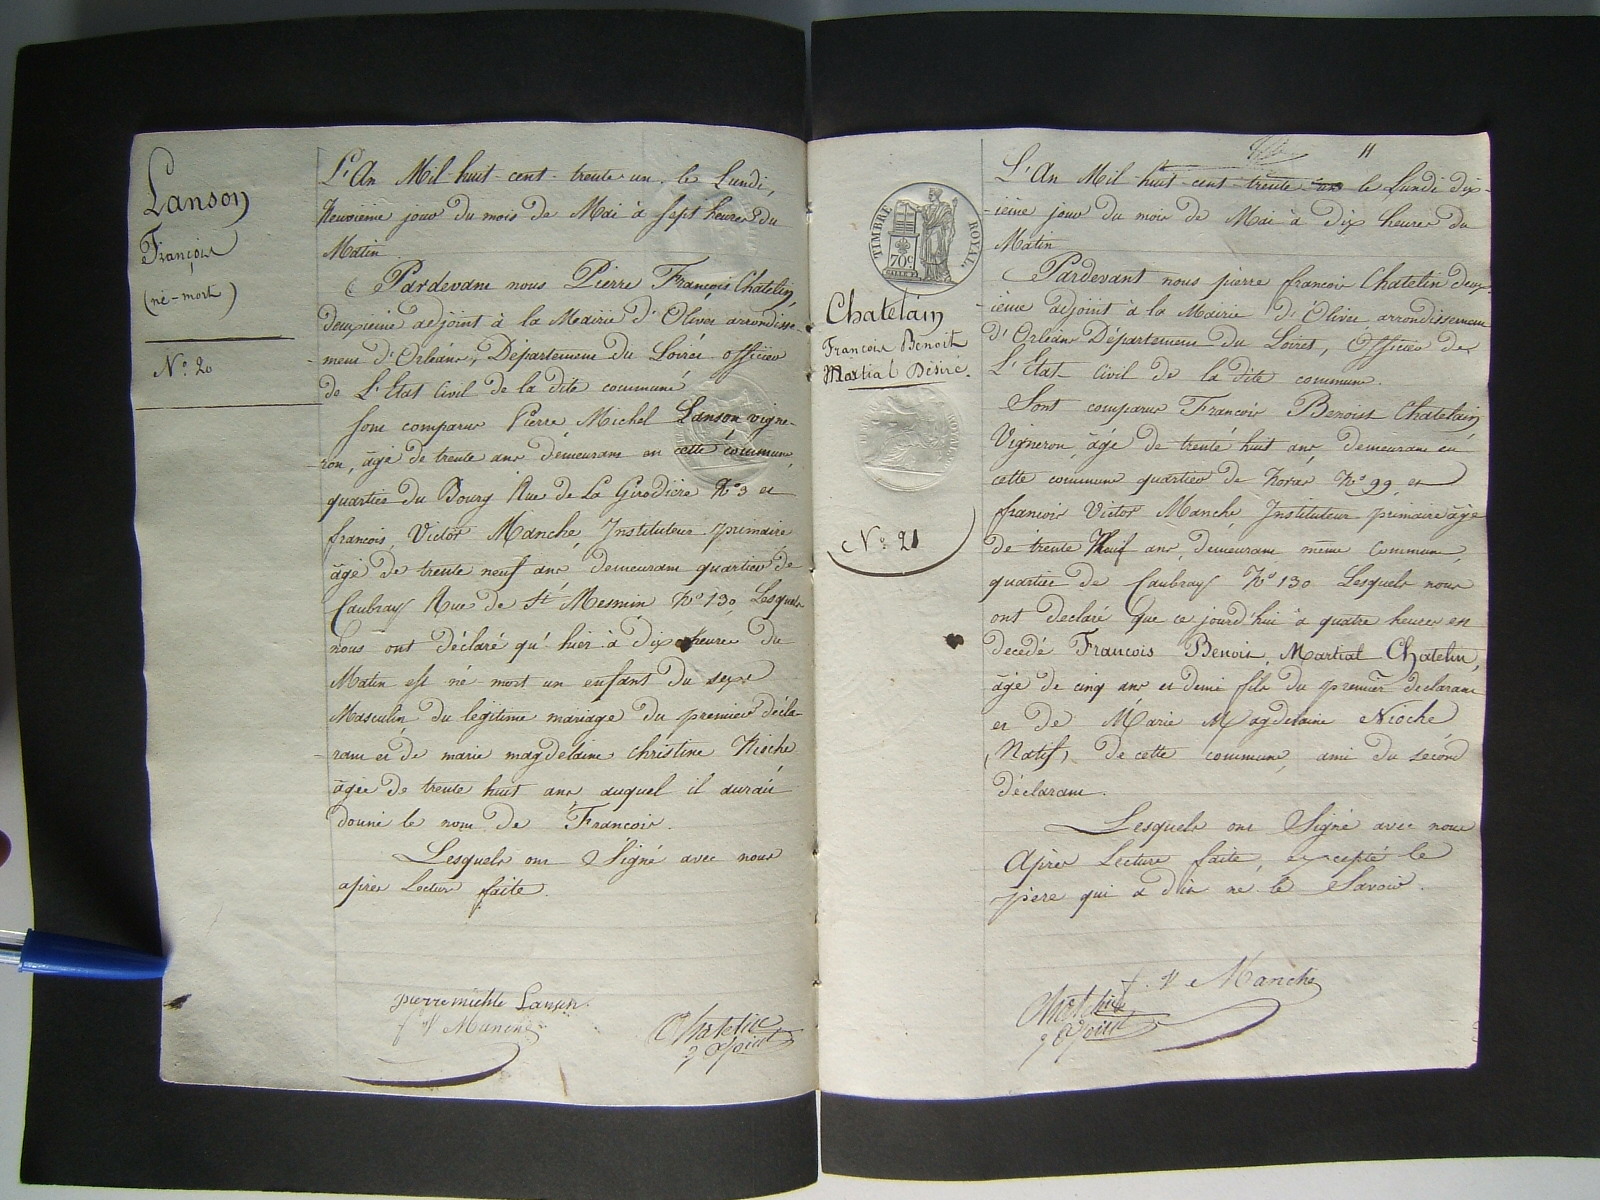 Lanson
François
(né-mort)
N.° 20
L'An Mil huit cent trente un le Lundi,
Neuvieme jour du mois de Mai à sept heures du
Matin
Pardevant nous Pierre François Chatelin,
deuxieme adjoint à la Mairie d'Olivet arrondisse-
-ment d'Orléans, Département du Loiret officier
de L'Etat Civil de la dite commune
Sont comparus Pierre Michel Lanson vigne-
-ron, âgé de trente ans demeurant en cette commune,
quartier du Bourg Rue de La Girodière N° 3 et
françois Victor Manche, Instituteur primaire
âgé de trente neuf ans demeurant quartier de
Caubray Rue de St Mesmin N° 130 Lesquels
nous ont déclaré qu'hier à dix heures du
Matin est né mort un enfant du sexe
Masculin du légitime mariage du premier décla-
-rant et de marie magdelaine christine Nioche
âgée de trente huit ans auquel il aurait
donné le nom de François.
Lesquels ont Signé avec nous
après Lecture faite.
pierre michle Lanson
f V Manche
Chatelin
2 adjoint
11
TIMBRE ROYAL.
70c
Chatelain
François Benoit
Martial Désiré.
N.° 21
L'An Mil huit cent trente un le Lundi dix-
-ième jour du mois de Mai à dix heures du
Matin
Pardevant nous pierre françois Chatelin deux-
-ième adjoint à la Mairie d'Olivet arrondissement
d'Orléans Département du Loiret, Officier de
L'Etat Civil de la dite commune.
Sont comparus François Benoist Chatelain
Vigneron, âgé de trente huit ans demeurant en
cette commune quartier de N° 99, et
françois Victor Manche, Instituteur primaire âgé
de trente Neuf ans, demeurant même Commune,
quartier de Caubray N° 130 Lesquels nous
ont declaré que ce jourd'hui à quatre heures est
decedé François Benois, Martial Chatelin,
âgé de cinq ans et demi fils du premier declarant
et de Marie Magdelaine Nioche
(Natif) de cette commune, ami du second
déclarant.
Lesquels ont Signé avec nous
Après Lecture faite, excepté le
père qui a dit ne le Savoir.
f. V Manche
Chatelin
2 adjoint